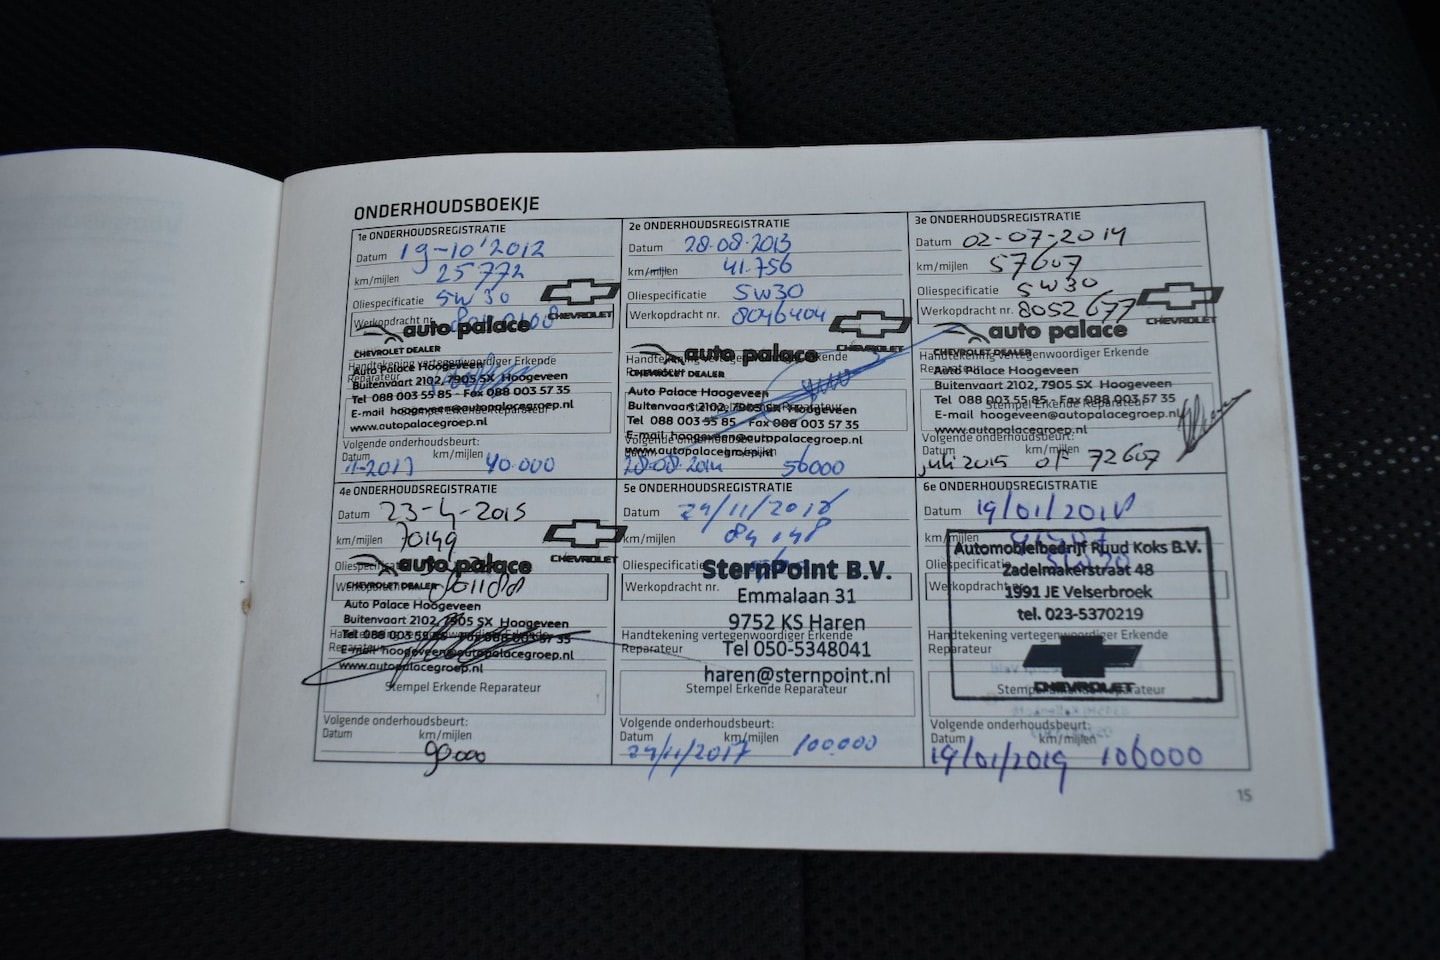 ONDERHOUDSBOEKJE
1e ONDERHOUDSREGISTRATIE
Datum 19-10'2012
km/mijlen 25772
Oliespecificatie 5W30
Werkopdracht nr.
CHEVROLET
auto palace
CHEVROLET DEALER
Handtekening vertegenwoordiger Erkende
Reparateur
Auto Palace Hoogeveen
Buitenvaart 2102, 7905 SX Hoogeveen
Tel 088 003 55 85 - Fax 088 003 57 35
E-mail hoogeveen@autopalacegroep.nl
Stempel Erkende Reparateur
www.autopalacegroep.nl
Volgende onderhoudsbeurt:
Datum km/mijlen
11-2013 40.000
2e ONDERHOUDSREGISTRATIE
Datum 28-08-2013
km/mijlen 41.756
Oliespecificatie 5W30
Werkopdracht nr. 8046404
CHEVROLET
auto palace
CHEVROLET DEALER
Handtekening vertegenwoordiger Erkende
Reparateur
Auto Palace Hoogeveen
Buitenvaart 2102, 7905 SX Hoogeveen
Stempel Erkende Reparateur
Tel 088 003 55 85 - Fax 088 003 57 35
E-mail hoogeveen@autopalacegroep.nl
Volgende onderhoudsbeurt:
www.autopalacegroep.nl
Datum km/mijlen
28-08-2014 56000
3e ONDERHOUDSREGISTRATIE
Datum 02-07-2014
km/mijlen 57607
Oliespecificatie 5W30
Werkopdracht nr. 8052677
CHEVROLET
auto palace
CHEVROLET DEALER
Handtekening vertegenwoordiger Erkende
Reparateur
Auto Palace Hoogeveen
Buitenvaart 2102, 7905 SX Hoogeveen
Tel 088 003 55 85 - Fax 088 003 57 35
Stempel Erkende Reparateur
E-mail hoogeveen@autopalacegroep.nl
www.autopalacegroep.nl
Volgende onderhoudsbeurt:
Datum km/mijlen
juli 2015 of 72607
4e ONDERHOUDSREGISTRATIE
Datum 23-4-2015
km/mijlen 70149
CHEVROLET
Oliespecificatie
auto palace
Werkopdracht nr.
CHEVROLET DEALER
Auto Palace Hoogeveen
Buitenvaart 2102, 7905 SX Hoogeveen
Handtekening vertegenwoordiger Erkende
Tel 088 003 55 85 - Fax 088 003 57 35
Reparateur
E-mail hoogeveen@autopalacegroep.nl
www.autopalacegroep.nl
Stempel Erkende Reparateur
Volgende onderhoudsbeurt:
Datum km/mijlen
90.000
5e ONDERHOUDSREGISTRATIE
Datum
km/mijlen 84148
Oliespecificatie
SternPoint B.V.
Werkopdracht nr.
Emmalaan 31
9752 KS Haren
Handtekening vertegenwoordiger Erkende
Reparateur
Tel 050-5348041
haren@sternpoint.nl
Stempel Erkende Reparateur
Volgende onderhoudsbeurt:
Datum km/mijlen
29/11/2017 100.000
6e ONDERHOUDSREGISTRATIE
Datum 19/01/2018
km/mijlen
Automobielbedrijf Ruud Koks B.V.
Oliespecificatie 5W30
Zadelmakerstraat 48
Werkopdracht nr.
1991 JE Velserbroek
tel. 023-5370219
Handtekening vertegenwoordiger Erkende
Reparateur
CHEVROLET
Stempel Erkende Reparateur
Volgende onderhoudsbeurt:
Datum km/mijlen
19/01/2019 106000
15